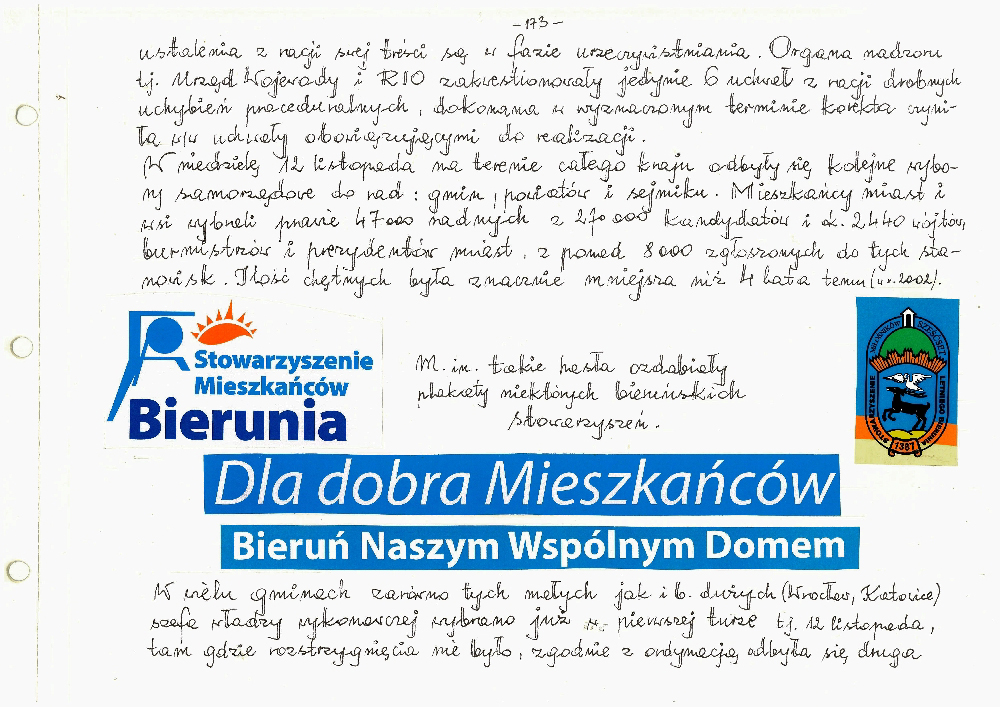 - 173 -
ustalenia z racji swej treści są w fazie urzeczywistniania. Organa nadzoru
tj. Urząd Wojewody i RIO zakwestionowały jedynie 6 uchwał z racji drobnych
uchybień proceduralnych, dokonana w wyznaczonym terminie korekta czyni-
ła w/w uchwały obowiązującymi do realizacji.
W niedzielę 12 listopada na terenie całego kraju odbyły się kolejne wybo-
ry samorządowe do rad: gmin, powiatów i sejmiku. Mieszkańcy miast i
wsi wybrali prawie 47000 radnych z 270000 kandydatów i ok. 2440 wójtów,
burmistrzów i prezydentów miast, z ponad 8000 zgłoszonych do tych sta-
nowisk. Ilość chętnych była znacznie mniejsza niż 4 lata temu (w r. 2002).
Stowarzyszenie
Mieszkańców
Bierunia
M. in. takie hasła ozdabiały
plakaty niektórych bieruńskich
stowarzyszeń.
STOWARZYSZENIE MIŁOŚNIKÓW SZEŚĆSET LETNIEGO BIERUNIA
1387
Dla dobra Mieszkańców
Bieruń Naszym Wspólnym Domem
W wielu gminach zarówno tych małych jak i b. dużych (Wrocław, Katowice)
szefa władzy wykonawczej wybrano już w pierwszej turze tj. 12 listopada,
tam gdzie rozstrzygnięcia nie było, zgodnie z ordynacją odbyła się druga